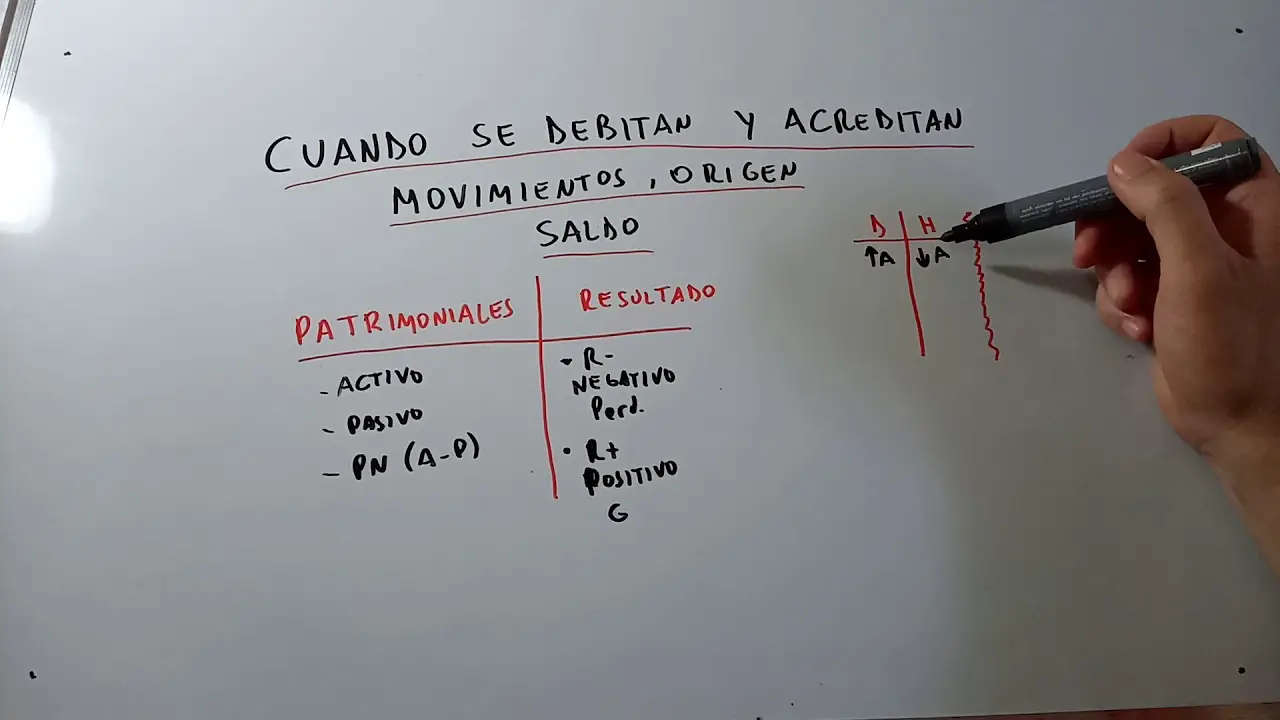 CUANDO SE DEBITAN Y ACREDITAN
MOVIMIENTOS, ORIGEN
SALDO
PATRIMONIALES
- ACTIVO
- PASIVO
- PN (A-P)
RESULTADO
- R-
NEGATIVO
Perd.
• R+
POSITIVO
G
D H
↑A ↓A